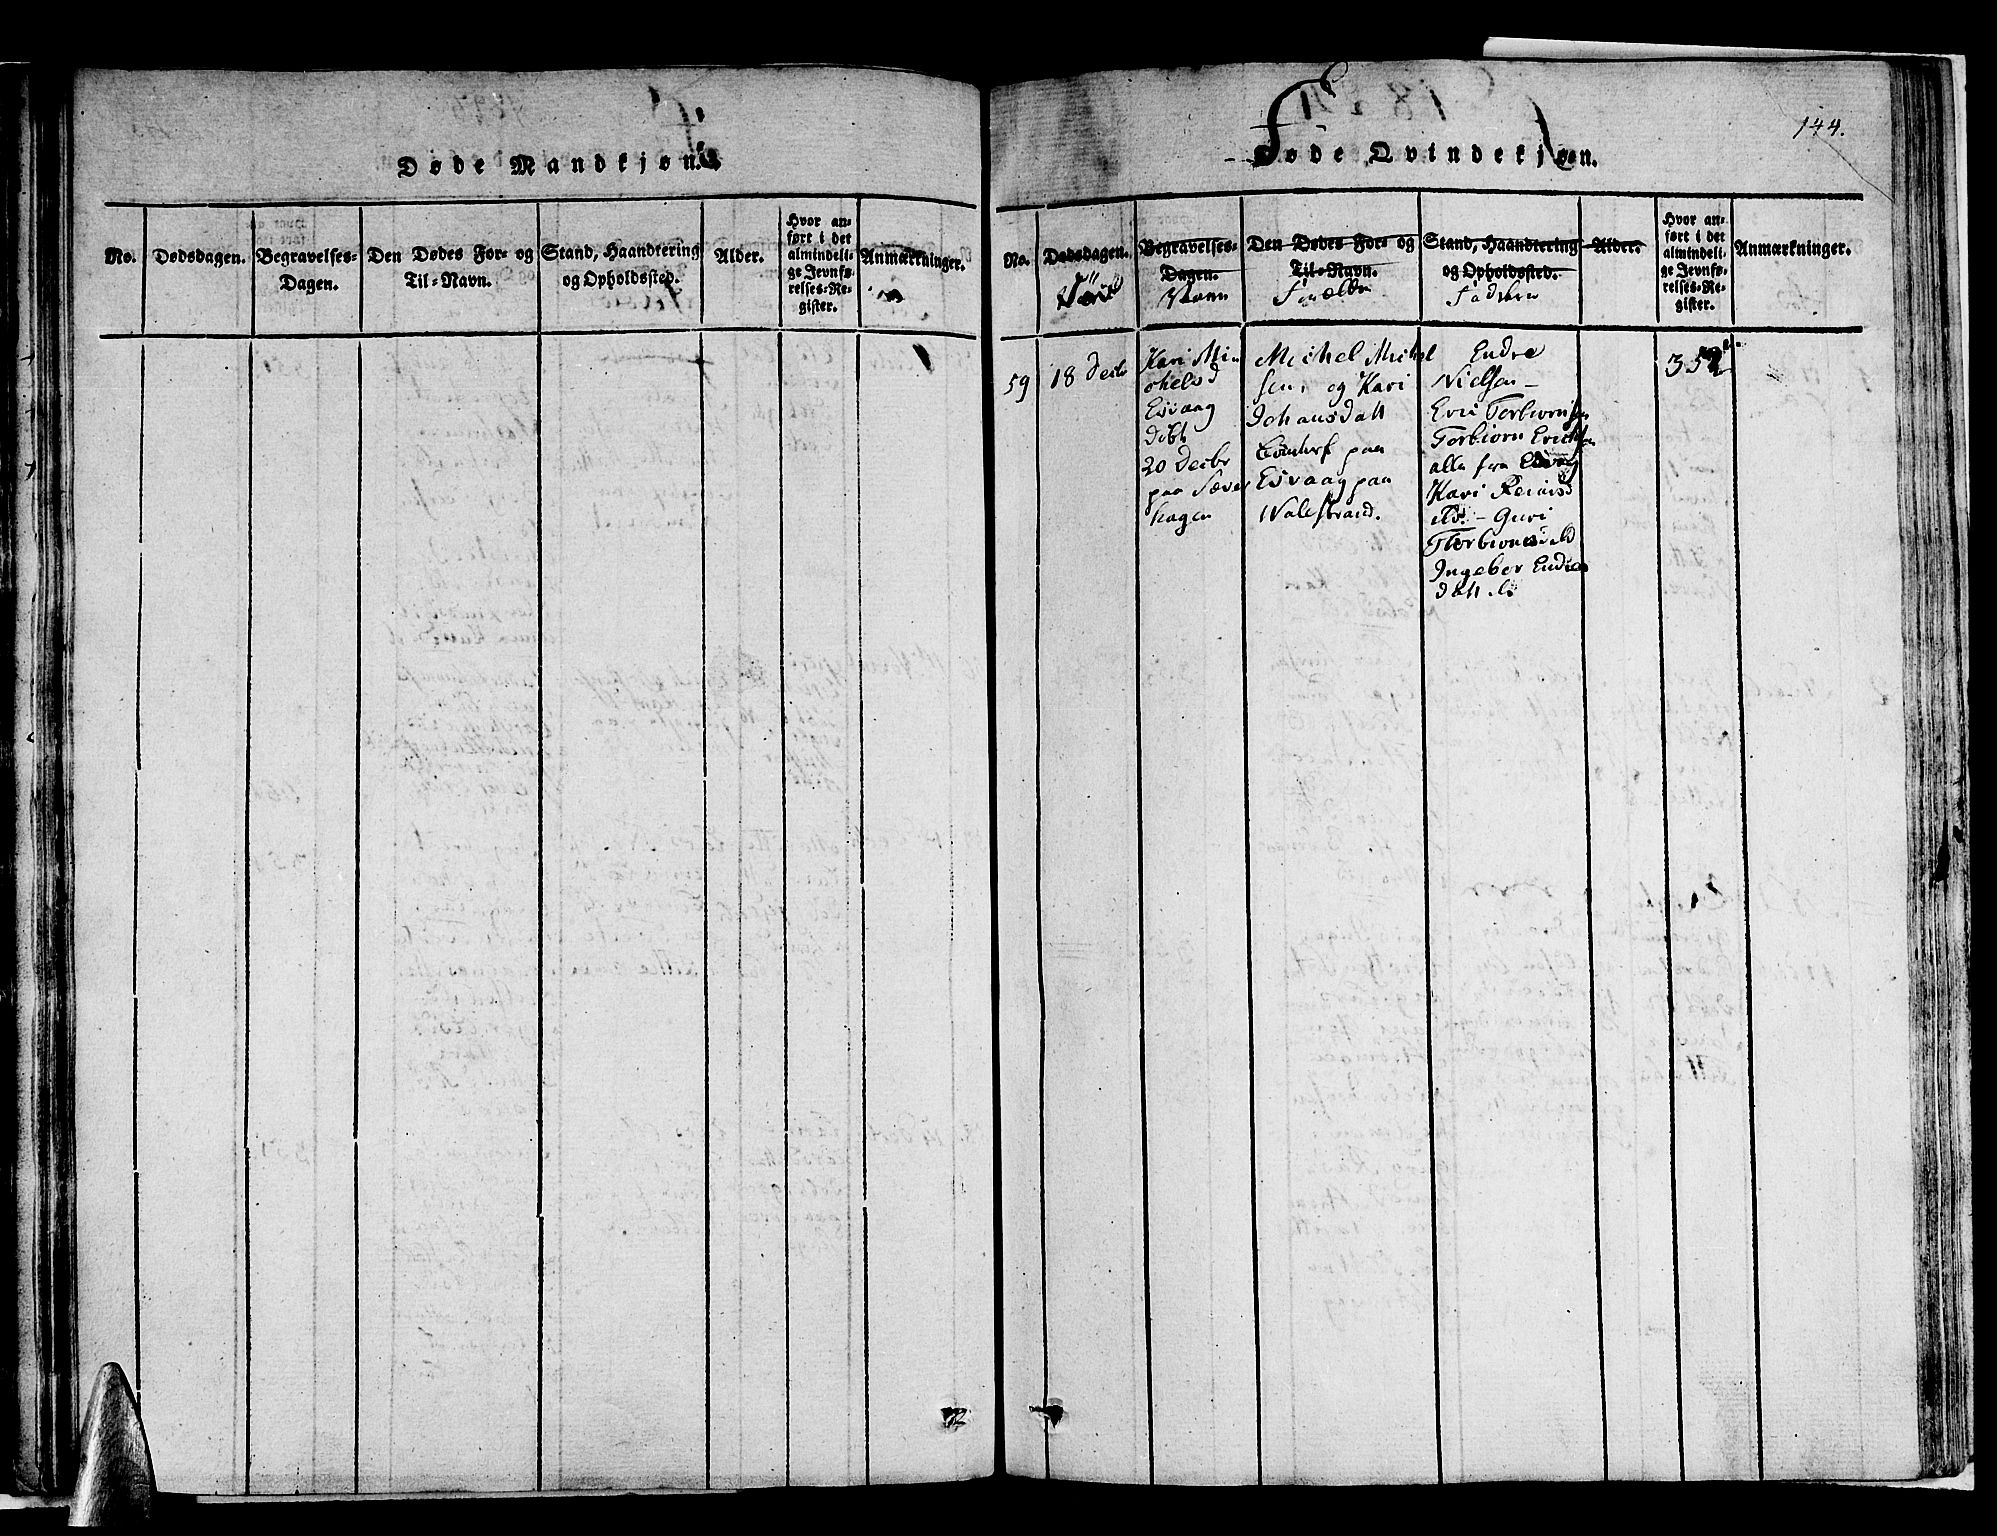 Døde Mandkjøn.
No.
Dødsdagen.
Begravelses-
Dagen.
Den Dødes For- og
Til-Navn.
Stand, Haandtering
og Opholdssted.
Alder.
Hvor an-
ført i det
almindeli-
ge Jevnfø-
relses-Re-
gister.
Anmærkninger.
144.
Føde Qvindekjøn.
No.
Dødsdagen.
Begravelses-
Dagen.
Navn
Den Dødes For- og
Til-Navn.
Forældre
Stand, Haandtering
og Opholdssted.
Faddere
Alder.
Hvor an-
ført i det
almindeli-
ge Jevnfø-
relses-Re-
gister.
Anmærkninger.
59
18 Decbr
Kari Mi
chelsd
Eivaag
døbt
20 Decbr
paa
hagen
Michel Michel
sen, og Kari
Johansdatt
paa
Eivaag paa
Walestrand.
Endre
Nielsen -
Eric Torbiornsen
Torbiorn Ericksen
alle fra Eivaag
Kari
- Guri
Torbionsd
Ingebor Endres
datt
352